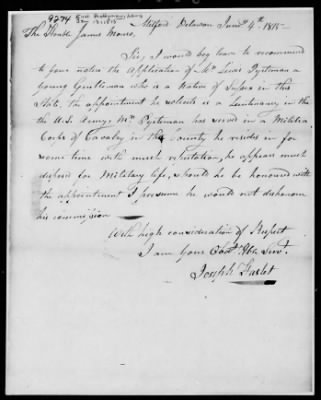 9274
Milford Delaware June 4th 1815
The Honble James Monroe,
Sir, I would beg leave to recommend
to your notice the Application of Mr Lewis
young Gentleman who is a Native of Sussex in this
State. the appointment he solicits is a Lieutenancy in the
the U.S. Army. Mr has served in a Militia
Corps of Cavalry in the County he resides in for
some time with much reputation, he appears much
disposed for Military life, should he be honoured with
the appointment I presume he would not dishonour
his commission
With high consideration of Respect
I am your Obdt Hbl Servt.
Joseph Haslet